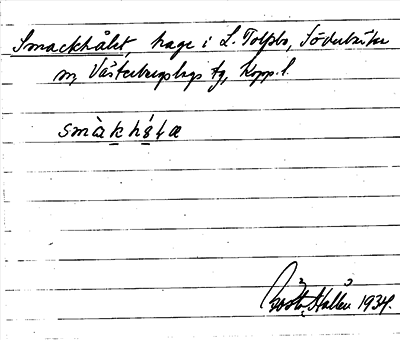 Smackhålet, hage i L. Tolsbo, Söderbärke
sn, Västerbergslags dg, Kopp. l.
smàkhó̱ɫæ
Hallén 1934.